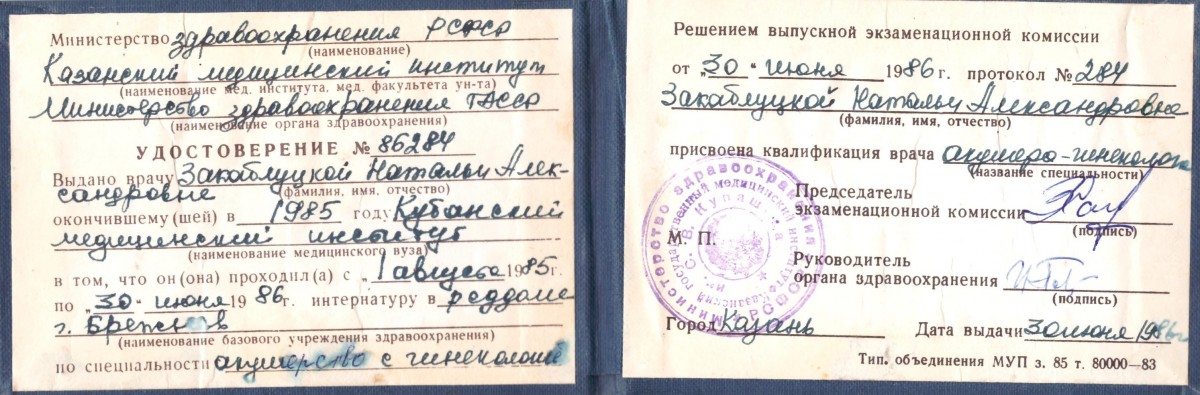 Министерство здравоохранения РСФСР
(наименование)
Казанский медицинский институт
(наименование мед. института, мед. факультета ун-та)
Министерство здравоохранения ТАССР
(наименование органа здравоохранения)
УДОСТОВЕРЕНИЕ № 86284
Выдано врачу Закаблуцкой Натальи Алек-
сандровне
(фамилия, имя, отчество)
окончившему (шей) в 1985 году Кубанский
медицинский институт
(наименование медицинского вуза)
в том, что он (она) проходил (а) с „1 августа 1985г.
по „30“ июня 1986г. интернатуру в роддоме
г. Брежнев
(наименование базового учреждения здравоохранения)
по специальности акушерство с гинекологией
Решением выпускной экзаменационной комиссии
от „30“ июня 1986г. протокол № 284
Закаблуцкой Натальи Александровне
(фамилия, имя, отчество)
присвоена квалификация врача акушера-гинеколога
(название специальности)
Председатель
экзаменационной комиссии
(подпись)
М. П.
Руководитель
органа здравоохранения
(подпись)
Город Казань Дата выдачи 30 июня 1986г.
Тип. объединения МУП з. 85 т. 80000—83
Министерство здравоохранения
государственный медицинский институт
С. В. Курашова